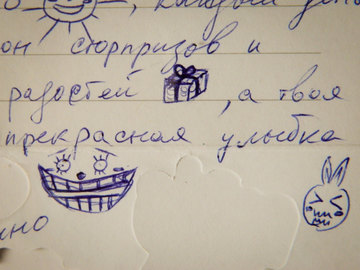 о , каждый день
он сюрпризов и
радостей , а твоя
прекрасная улыбка
чно